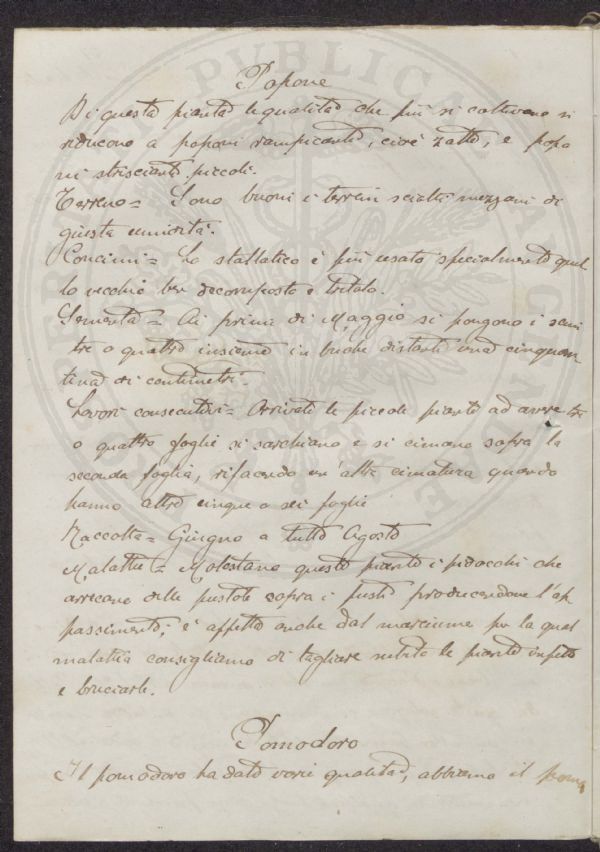 Popone
Di questa pianta le qualità che più si coltivano si
riducono a poponi rampicanti, cioè zatti, e popo
ni striscianti piccoli.
Terreno = Sono buoni i terreni sciolti mezzani di
giusta umidità.
Concimi = Lo stallatico è più usato specialmente quel
lo vecchio ben decomposto e tritato.
Sementa = Ai primi di Maggio si pongono i semi
tre o quattro insieme in buche distanti una cinquan
tina di centimetri.
Lavori consecutivi = Arrivate le piccole piante ad avere tre
o quattro foglie si sarchiano e si cimano sopra la
seconda foglia, rifacendo un'altra cimatura quando
hanno altre cinque o sei foglie
Raccolta = Giugno a tutto Agosto
Malattie = Molestano queste piante i pidocchi che
arrecano delle pustole sopra i fusti producendone l'ap
passimento; è affetta anche dal marciume per la qual
malattia consigliamo di tagliare subito le piante infette
e bruciarle.
Pomodoro
Il pomodoro ha dato varie qualità, abbiamo il pomo